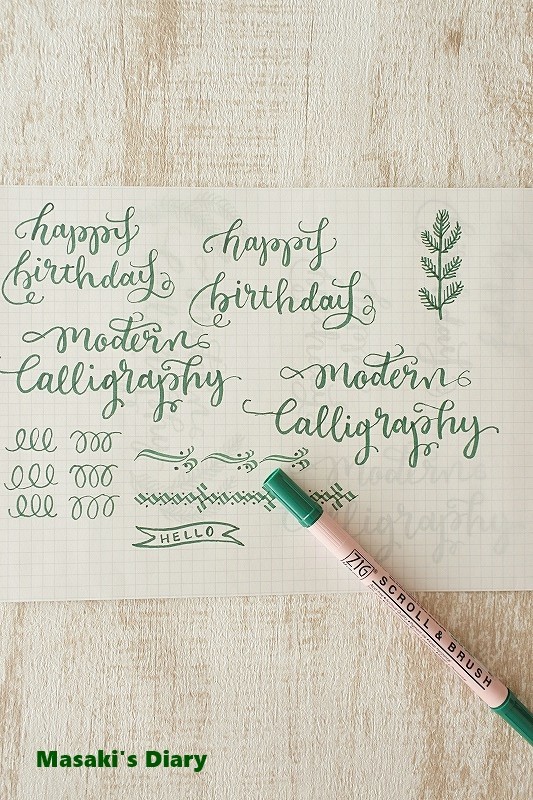 happy
birthday
happy
birthday
modern
Calligraphy
modern
Calligraphy
HELLO
ZIG SCROLL & BRUSH
Masaki's Diary